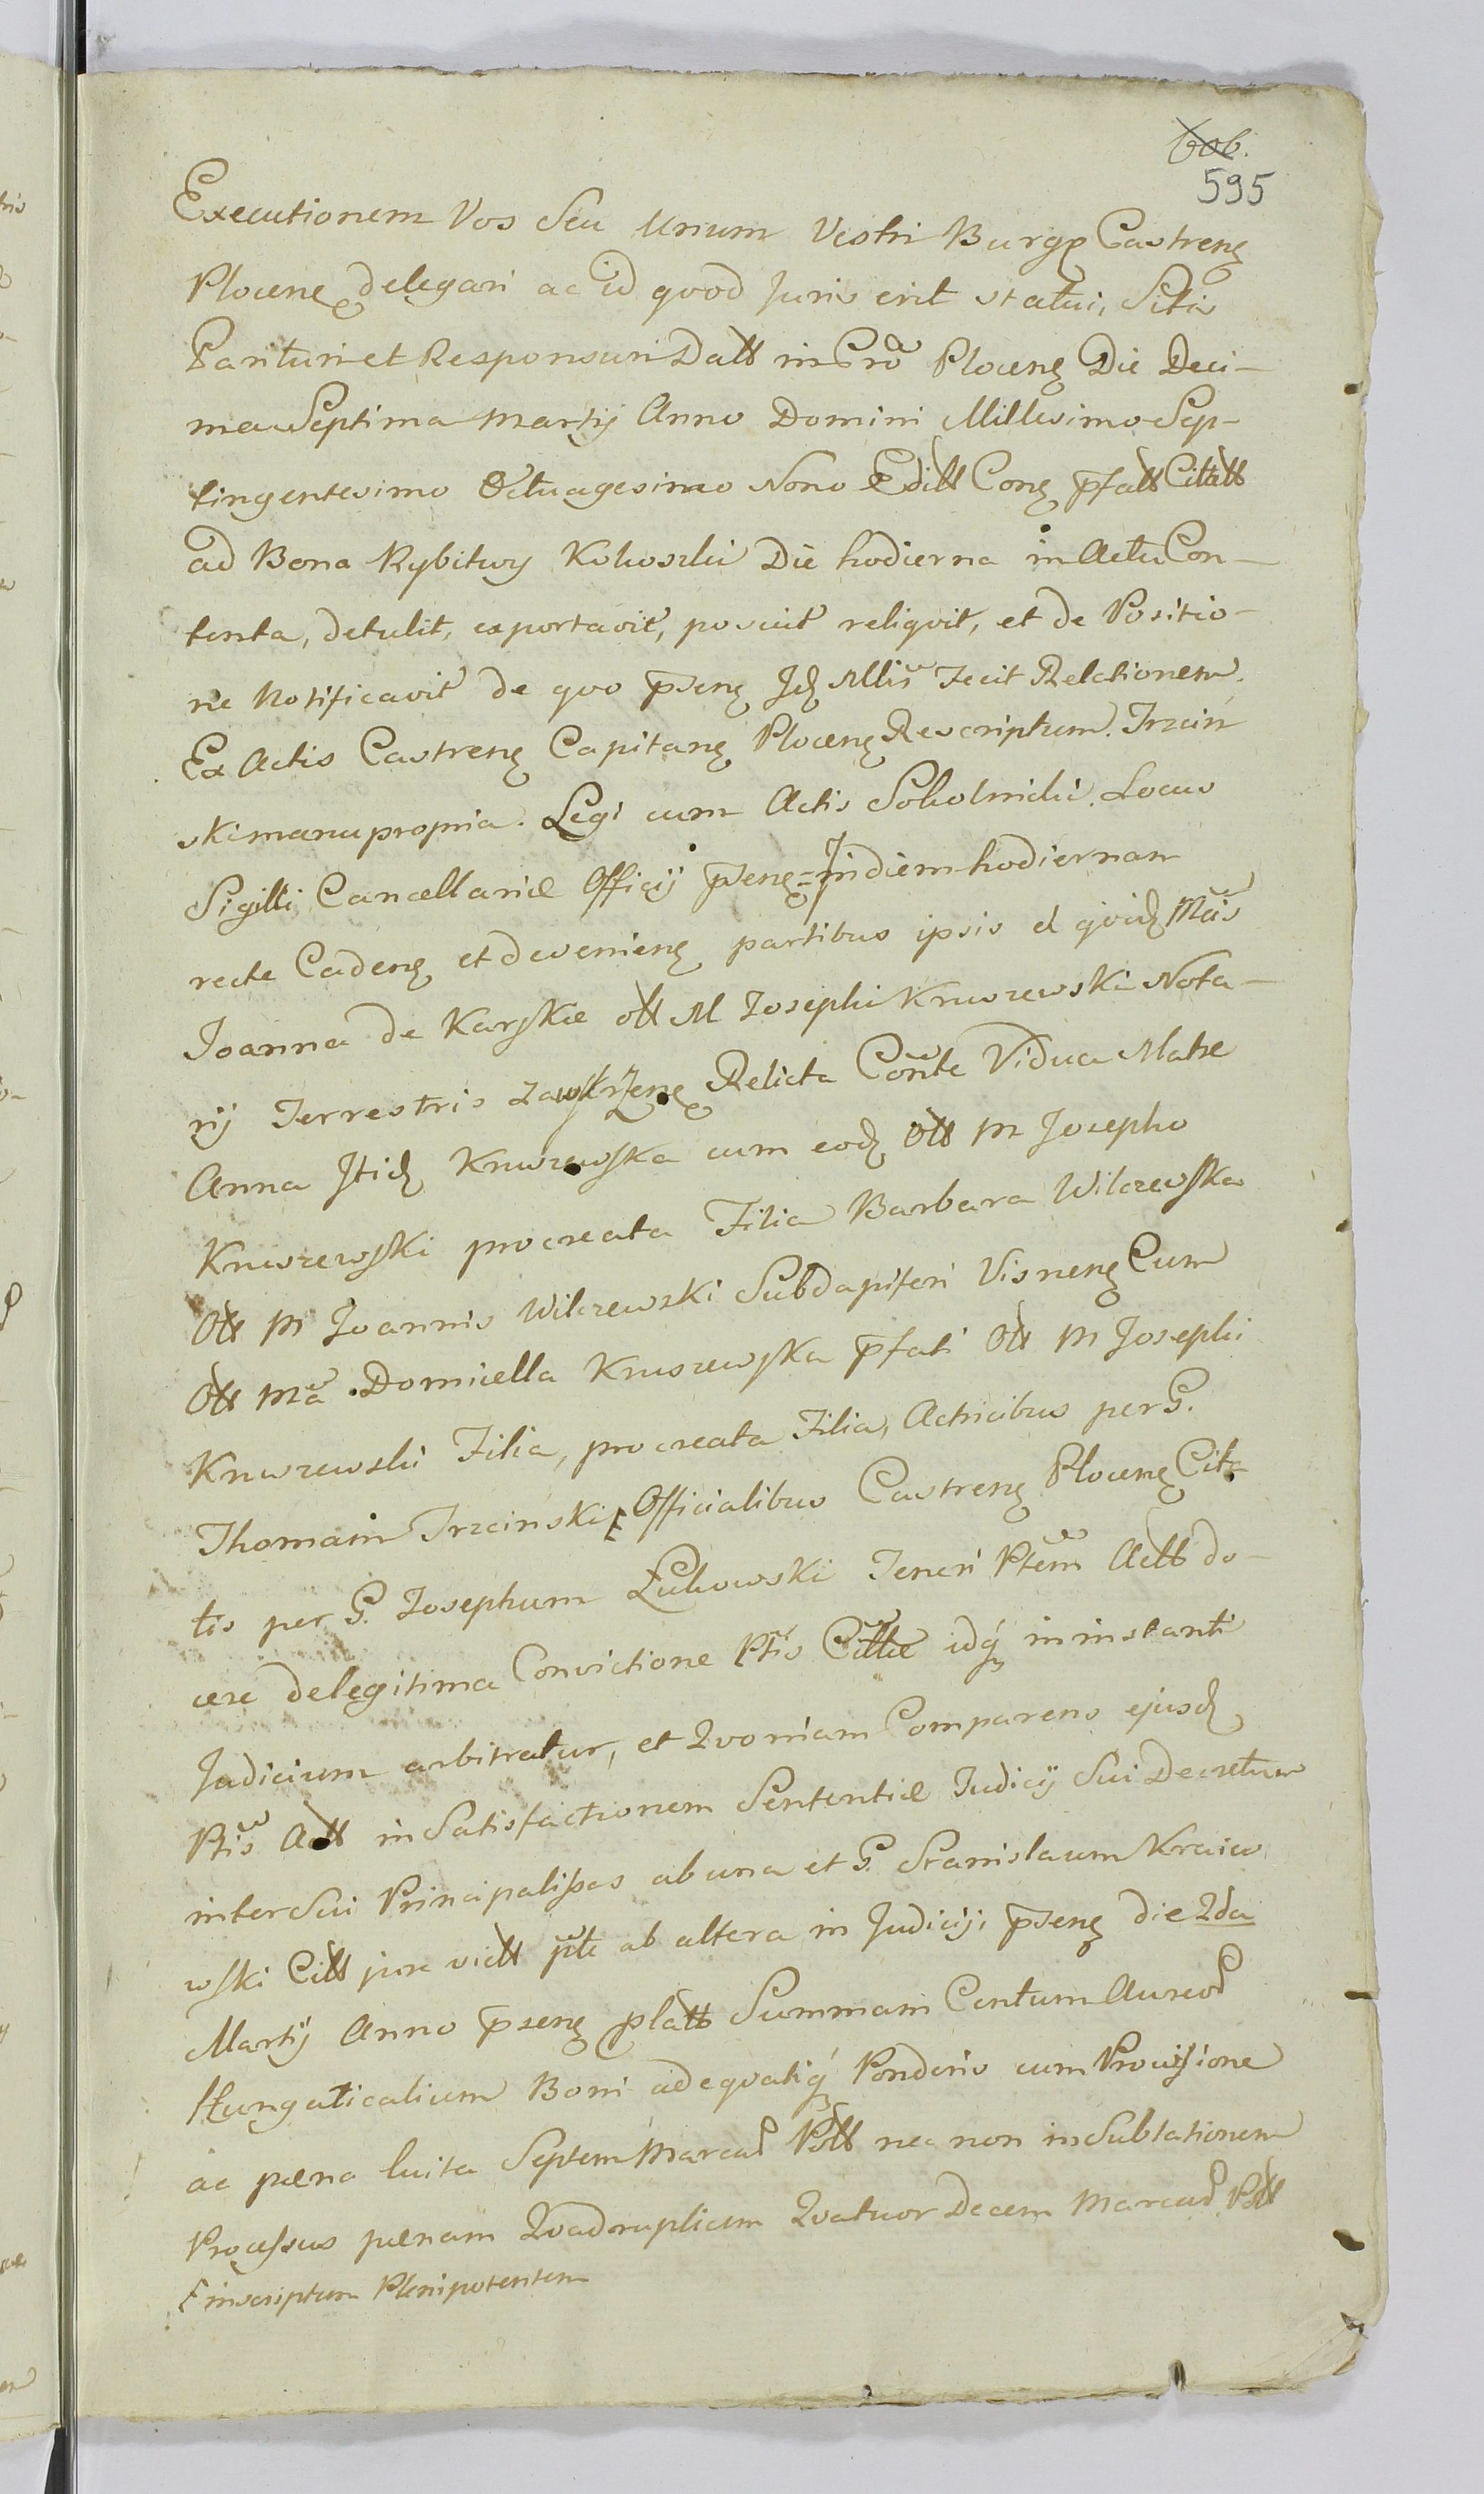 606.
595
Executionem Vos Seu Unum Vestri Burgg Castreng
Ploceng delegari ac id qvod Juris erit statui, Sitis
Parituri et Responsuri Datt in Cro Ploceng Die Deci-
ma Septima Martij Anno Domini Millesimo Sep-
tingentesimo Octuagesimo Nono Editt Cong pfatt Citatt
ad Bona Rybitwy Kokoszki Die hodierna in Actu Con-
tenta, detulit, exportavit, posuit reliqvit, et de Positio-
ne Notificavit de qvo pseng Jd Mlis Fecit Relationem.
Ex Actis Castreng Capitang Ploceng Rescriptum. Trzcin
ski manu propria. Legi cum Actis Sokolnicki. Locus
Sigilli Cancellariæ Officij pseng = in diem hodiernam
recte Cadeng et devenieng partibus ipsis et qvid Mcis
Joanna de Karskie ott M Josephi Kruszewski Nota-
rij Terrestris Zawskrzeng Relicta Conte Vidua Matre
Anna Itid Kruszewska cum eod Ott M Josepho
Kruszewski procreata Filia Barbara Wilczewska
Ott M Joannis Wilczewski Subdapiferi Visneng Cum
Ott Ma Domicella Kruszewska pfati Ott M Josephi
Kruszewski Filia, procreata Filia, Actricibus per G.
Thomam Trzcinski Officialibus Castreng Ploceng Cit-
tis per G. Josephum Łukowski Teneri Ptem Actt do-
cere de legitima Convictione Ptis Cittæ idq in instanti
Judicium arbitratur, et Qvoniam Comparens ejusd
Ptis Actt in Satisfactionem Sententiæ Judicij Sui Decretum
inter Sui Principalissas ab una et G. Stanislaum Kraie
wski Citt jure victt pte ab altera in Judicij, pseng die 2da
Martij Anno pseng platt Summam Centum Aureor
Hungaticalium Boni adeqvatiq Ponderis cum Provisione
ac pæna luita Septem Marcar Pott nec non in Sublationem
Processus pænam Qvadruplicem Qvatuor Decem Marcar Pott
inscriptum Plenipotentem